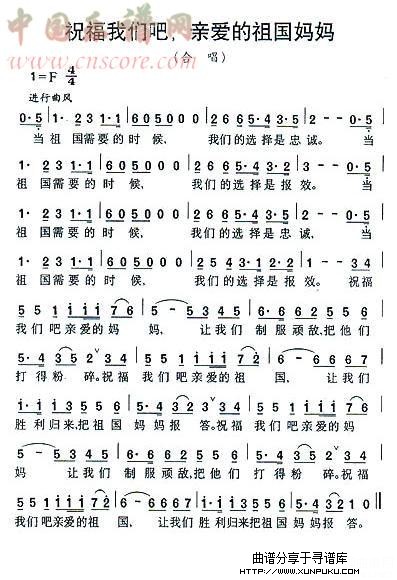 中国乐谱网
www.cnscore.com
祝福我们吧，亲爱的祖国妈妈
（合 唱）
1=F 4/4
进行曲风
0·5 | 1· 2 3 1·1 | 6 0 5 0 5 0 | 2 6 6 5·4 3 2 | 1 - - 0·5 |
当 祖 国需要的 时 候， 我们的选择是忠诚。 当
1· 2 3 1·1 | 6 0 5 0 5 0 | 2 6 6 5·4 3·2 | 3 - - 0·5 |
祖 国需要的 时 候， 我们的选择是报效。 当
1· 2 3 1·1 | 6 0 5 0 5 0 | 2 6 6 5·4 3 2 | 1 - - 0·5 |
祖 国需要的 时 候， 我们的选择是忠诚， 当
1· 2 3 1·1 | 6 0 5 0 5 0 | 2 6 6 5·4 3·2 | 1 - - 3 4 |
祖 国需要的 时 候， 我们的选择是报效。 祝福
5 5 1 1 1 7 6 | 5 - 5 3 4 | 5 5 1 1 1 7 6 |
我们吧亲爱的妈 妈， 让我们 制服顽敌，把他们
5· 4 3 2 3 4 | 5 5 1 1 1 7 2 | 6 - - 6 7 |
打得粉 碎。祝福 我们吧亲爱的祖 国， 让我们
1· 1 1 3 5 5 6 | 5· 4 3 2 3 4 | 5 5 1 1 1 7 6 |
胜利归来，把祖国 妈妈报 答。祝福 我们吧亲爱的妈
5 - 5 3 4 | 5 5 1 1 1 7 6 | 5· 4 3 2 3 4 |
妈 让我们 制服顽敌，把他们 打得粉 碎。祝福
5 5 1 1 1 7 2 | 6 - - 6 7 | 1·1 1 3 5 5 6 | 5· 4 3 2 | 1 - - ‖
我们吧亲爱的祖 国， 让我们 胜利归来把祖国妈妈报 答。
曲谱分享于寻谱库
HTTP://WWW.XUNPUKU.COM